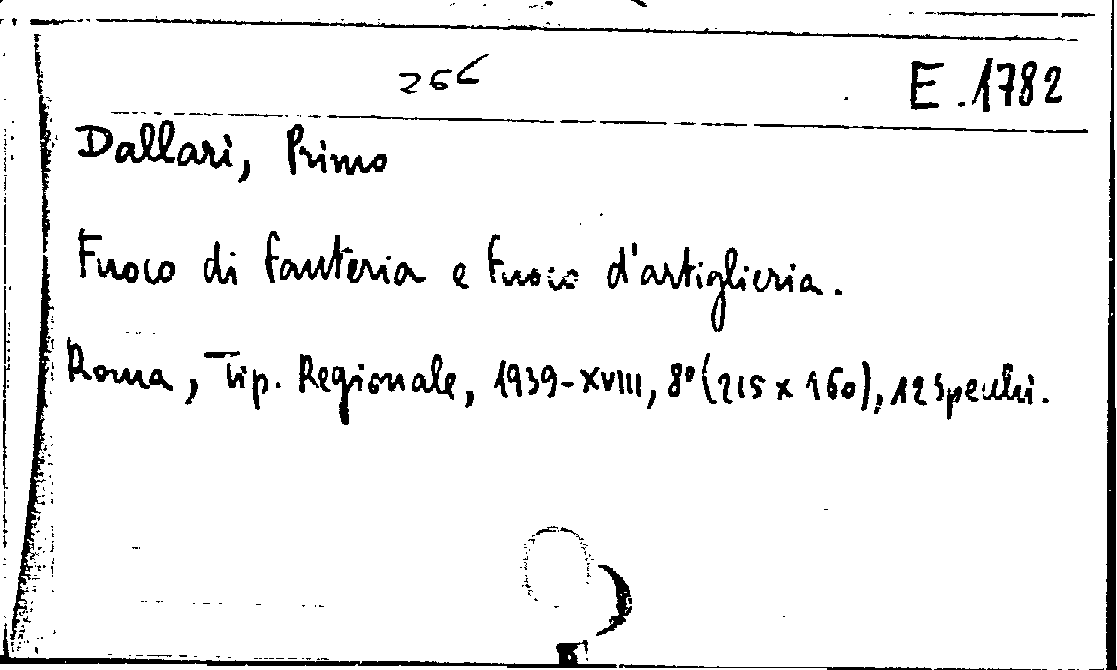 266 E.1782
Dallari, Primo
Fuoco di fanteria e fuoco d'artiglieria.
Roma, Tip. Regionale, 1939-XVIII, 8º (215 x 160), 12 specchi.